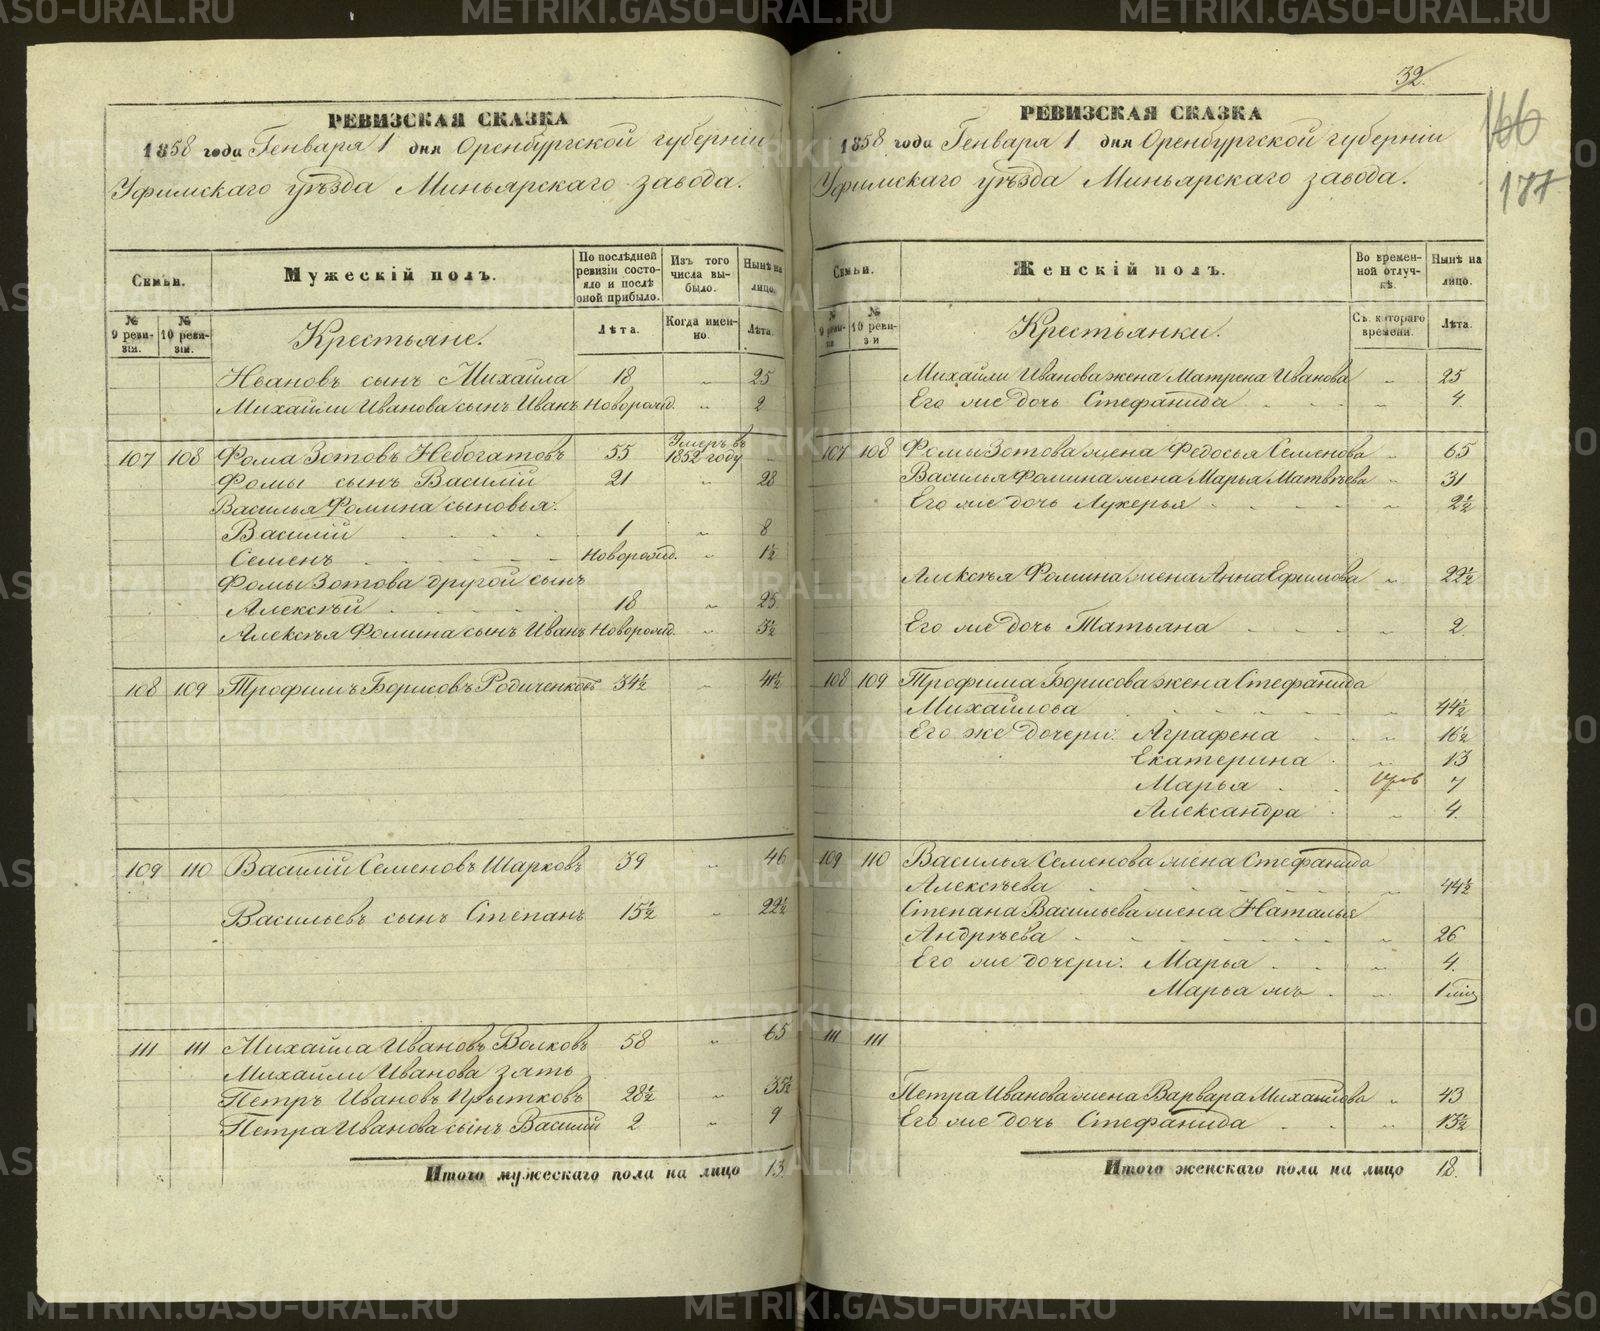 РЕВИЗСКАЯ СКАЗКА
1858 года Генваря 1 дня Оренбургской губерніи
Уфимскаго уѣзда Миньярскаго завода.
Семьи.
Мужескій полъ.
По послѣдней ревизіи состояло и послѣ оной прибыло.
Изъ того числа выбыло.
Нынѣ на лицо.
№ 9 ревизіи.
№ 10 ревизіи.
Крестьяне.
Лѣта.
Когда именно.
Лѣта.
Ивановъ сынъ Михайла 18 „ 25
Михайли Иванова сынъ Иванъ Новорожд. „ 2
107 108 Фома Зотовъ Небогатовъ 55 Умеръ въ 1852 году „
Фомы сынъ Василій 21 „ 28
Василья Фомина сыновья:
Василій 1 „ 8
Семенъ Новорожд. „ 1½
Фомы Зотова другой сынъ
Алексѣй 18 „ 25
Алексѣя Фомина сынъ Иванъ Новорожд. „ 3½
108 109 Трофимъ Борисовъ Родиченковъ 34½ „ 41½
109 110 Василій Семеновъ Шарковъ 39 „ 46
Васильевъ сынъ Степанъ 15½ „ 22½
111 111 Михайла Ивановъ Волковъ 58 „ 65
Михайли Иванова зять
Петръ Ивановъ Прытковъ 28½ „ 35½
Петра Иванова сынъ Василій 2 „ 9
Итого мужескаго пола на лицо 13.
32.
166
177
РЕВИЗСКАЯ СКАЗКА
1858 года Генваря 1 дня Оренбургской губерніи
Уфимскаго уѣзда Миньярскаго завода.
Семьи.
Женскій полъ.
Во временной отлучкѣ.
Нынѣ на лицо.
№ 9 ревизіи.
№ 10 ревизіи
Крестьянки.
Съ котораго времени.
Лѣта.
Михайли Иванова жена Матрена Иванова „ 25
Его же дочь Стефанида „ 4.
107 108 Фомы Зотова жена Федосья Семенова „ 65
Василья Фомина жена Марья Матвѣева „ 31
Его же дочь Лукерья „ 2½
Алексѣя Фомина жена Анна Ефимова „ 22½
Его же дочь Татьяна „ 2.
108 109 Трофима Борисова жена Стефанида
Михайлова „ 44½
Его же дочери: Аграфена „ 16½
Екатерина „ 13
Марья 7
Александра „ 4.
109 110 Василья Семенова жена Стефанида
Алексѣева „ 44½
Степана Васильева жена Наталья
Андрѣева „ 26
Его же дочери: Марья „ 4.
Марья жъ „ 1 мѣс
111 111
Петра Иванова жена Варвара Михайлова „ 43
Его же дочь Стефанида „ 13½
Итого женскаго пола на лицо 18.
METRIKI.GASO-URAL.RU